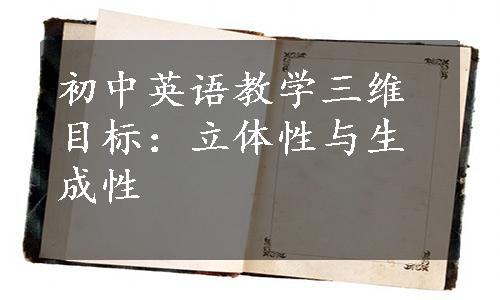 初中英语教学三维
目标：立体性与生
成性